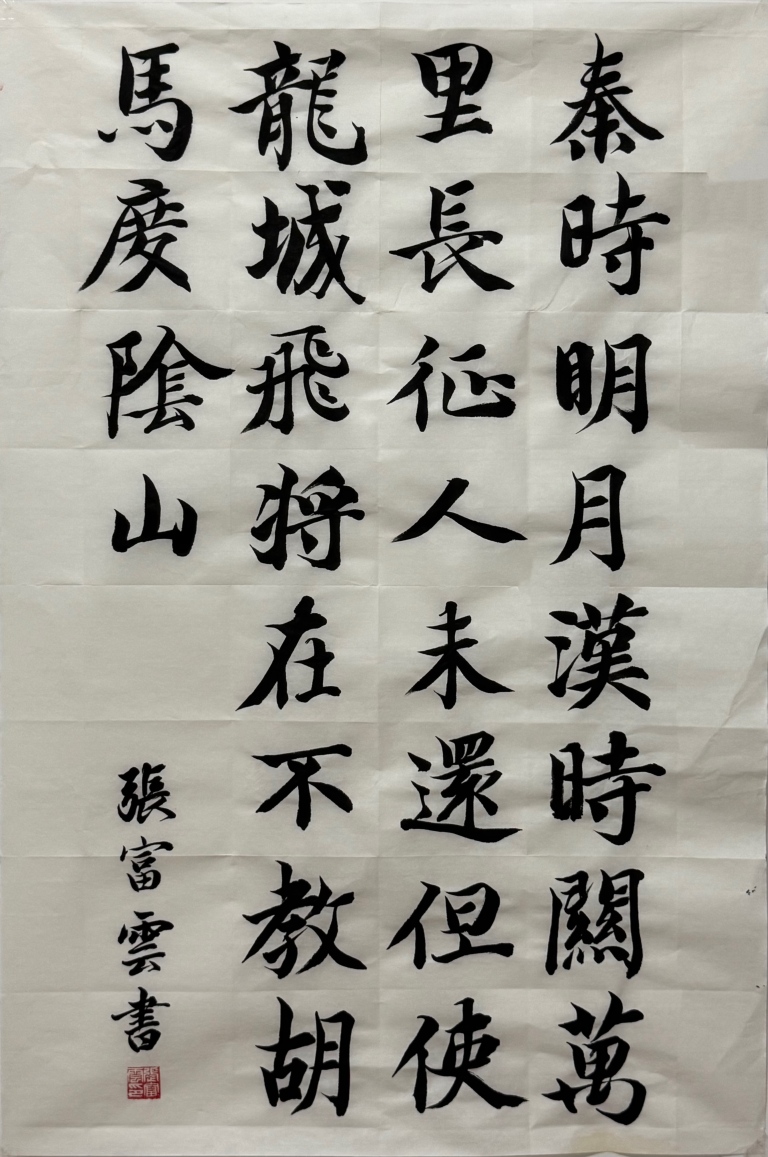 秦時明月漢時關萬
里長征人未還但使
龍城飛将在不教胡
馬度陰山
張富雲書